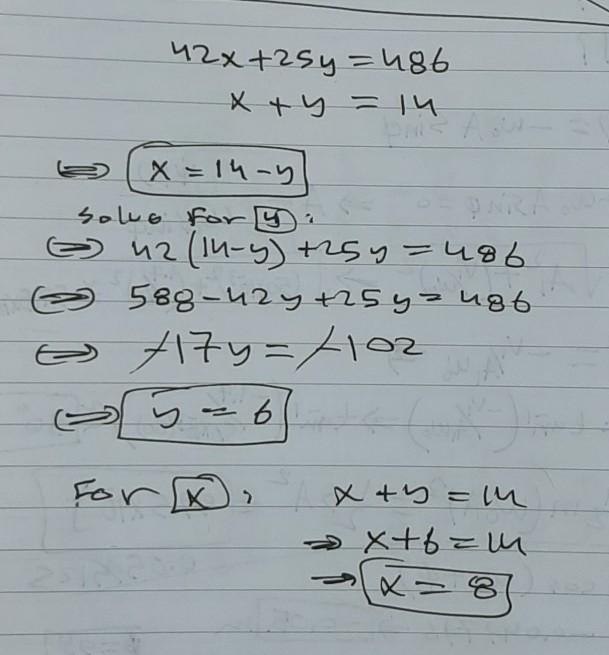 42x+25y=486
x + y = 14
⇔ x = 14-y
Solve for y:
⇔ 42(14-y)+25y=486
⇔ 588-42y+25y=486
⇔ -17y=-102
⇔ y = 6
For x, x+y=14
⇒ x+6=14
→ x = 8